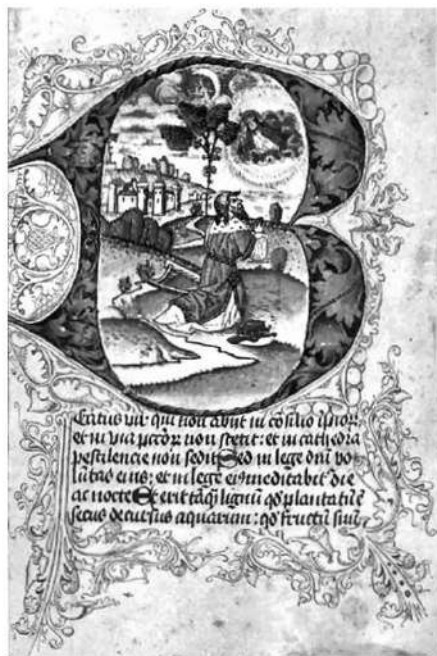 B
Eatus vir qui non abiit in cōsilio īpior᷑
et in via pctōr᷑ non stetit: et in cathedra
pestilencie non sedit Sed in lege dnī vo-
lūtas eius: et in lege eiꝰ meditabit᷑ die
ac nocte Et erit tāq̄ lignū qd̓ plantatū ē
secus decursus aquarum: qd̓ fructū suū